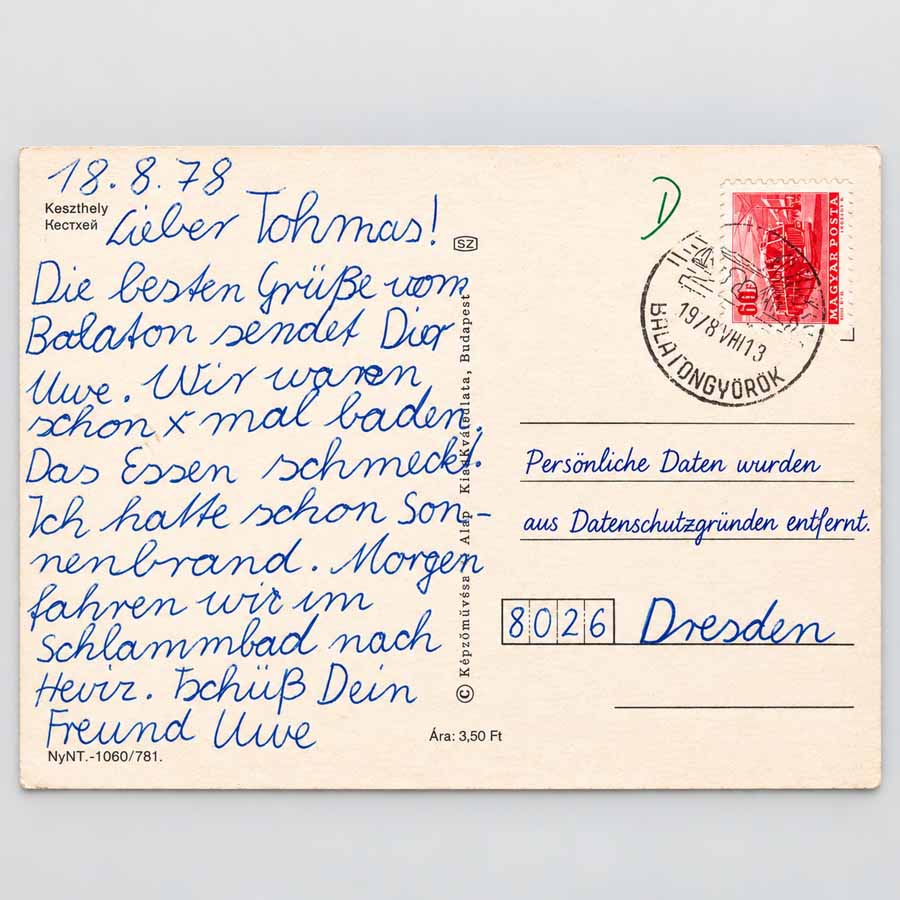 18.8.78
Keszthely
Кестхей
Lieber Tohmas!
SZ
Die besten Grüße vom
Balaton sendet Dir
Uwe. Wir waren
schon x mal baden.
Das Essen schmeckt.
Ich hatte schon Son-
nenbrand. Morgen
fahren wir im
Schlammbad nach
Heviz. Tschüß Dein
Freund Uwe
NyNT.-1060/781.
© Képzőművésa Alap Kiadóvátedlata, Budapest
Ára: 3,50 Ft
D
60f
MAGYAR POSTA
1978 VIII 13
BALATONGYÖRÖK
Persönliche Daten wurden
aus Datenschutzgründen entfernt.
8026 Dresden